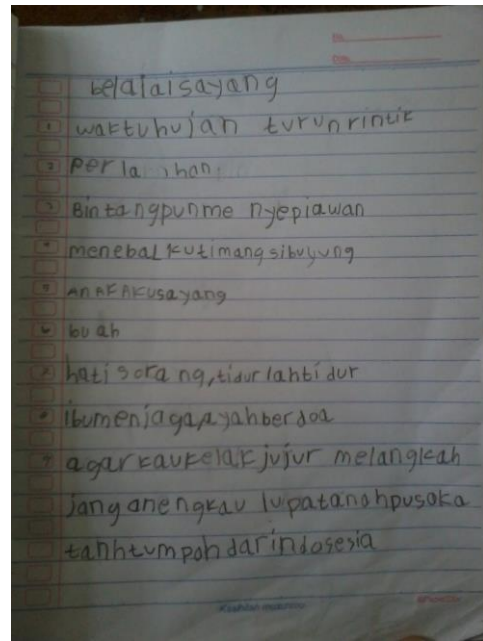 No.
Date.
belalaisayang
1 waktuhujan turunrintik
2 perla han
3 Bintangpunme nyepiawan
4 menebal kutimangsibuyung
5 AnAkAkusayang
6 buah
7 hatisora ng,tidurlahtidur
8 ibumenjaga,ayahberdoa
9 agarkaukelak jujur melangkah
janganengkau lupatanahpusaka
tanhtumpahdarindosesia